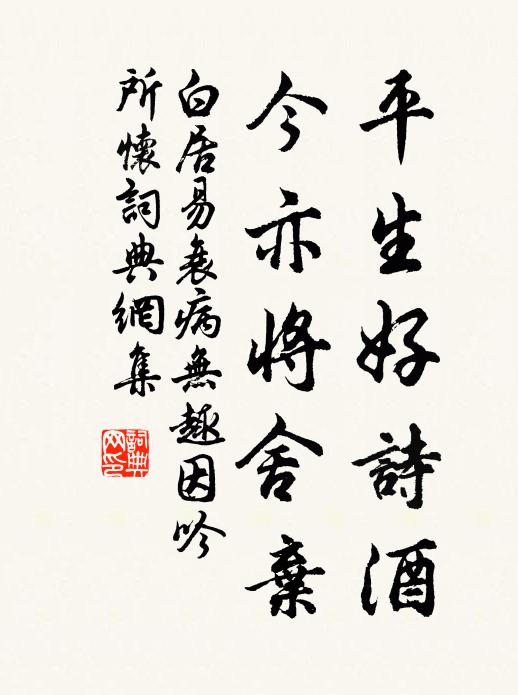 平生好詩酒
今亦將舍棄
白居易衰病無趣因吟
所懷詞典網集
詞典网印